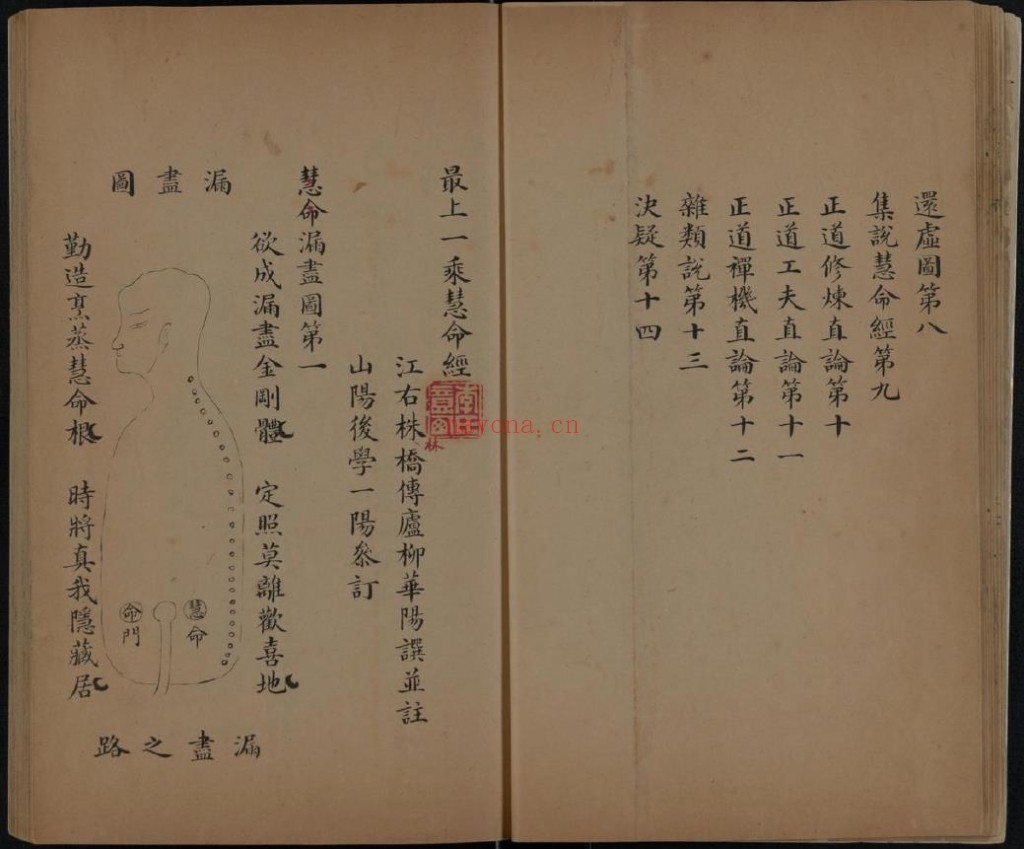 還虛圖第八
集說慧命經第九
正道修煉直論第十
正道工夫直論第十一
正道禪機直論第十二
雜類說第十三
決疑第十四
最上一乘慧命經
江右株橋傳廬柳華陽譔並註
山陽後學一陽叅訂
慧命漏盡圖第一
欲成漏盡金剛體 定照莫離歡喜地
漏盡圖
慧命
命門
勤造烹蒸慧命根 時將真我隱藏居
漏盡之路